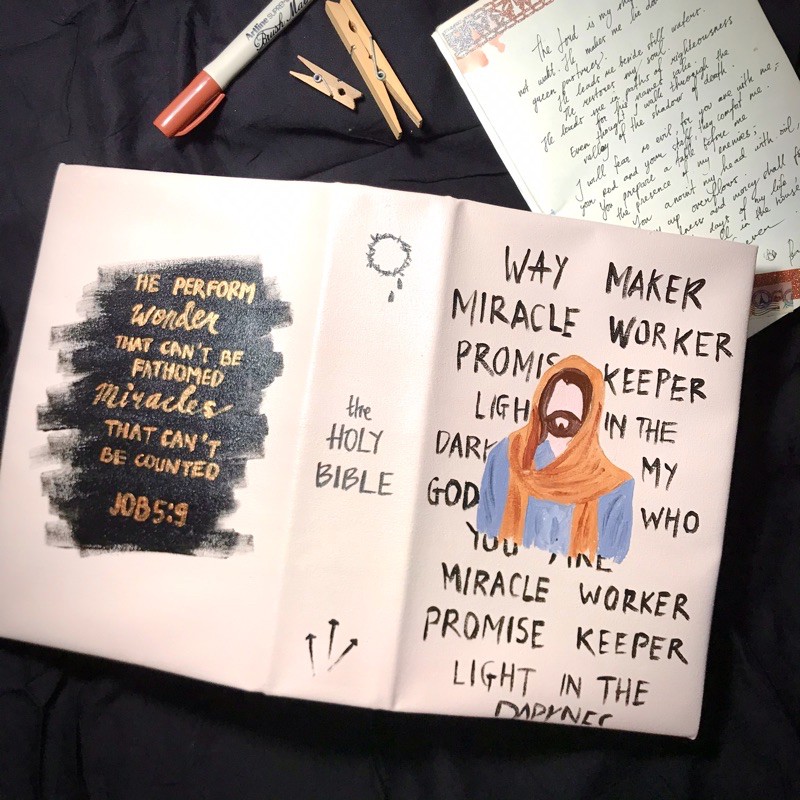 Artline SUPREME
Brush Marker
The Lord is my
not want. He makes me lie do
green pastures.
He leads me beside still waters.
He restores my soul.
He leads me in paths of righteousness
for his name's sake.
Even though I walk through the
valley of the shadow of death.
I will fear no evil, for you are with me;
your Rod and your staff, they comfort me.
You prepare a table before me
in the presence of my enemies;
You anoint my head with oil,
my cup overflows.
ness and mercy shall
days of my life
in the house
HE PERFORM
Wonder
THAT CAN'T BE
FATHOMED
Miracles
THAT CAN'T
BE COUNTED
JOB 5:9
the
HOLY
BIBLE
WAY MAKER
MIRACLE WORKER
PROMIS KEEPER
LIGH IN THE
DARK MY
GOD WHO
YOU ARE
MIRACLE WORKER
PROMISE KEEPER
LIGHT IN THE
DARKNES